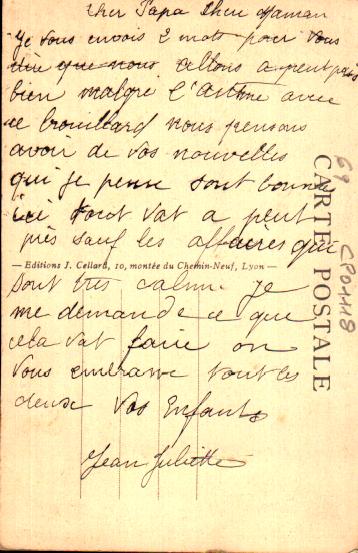 Cher Papa Cher Maman
Je vous envois 2 mots pour vous
dire que nous allons a peut près
bien malgré l'Asthme avec
ce brouillard nous pensons
avoir de vos nouvelles
qui je pense sont bonne
ici tout vat a peut
près sauf les affaires qui
— Editions J. Cellard, 10, montée du Chemin-Neuf, Lyon —
sont très calme je
me demande ce que
cela vat faire on
vous embrasse tout les
deux Vos Enfants
Jean Juliette
CARTE POSTALE
69 CP01118